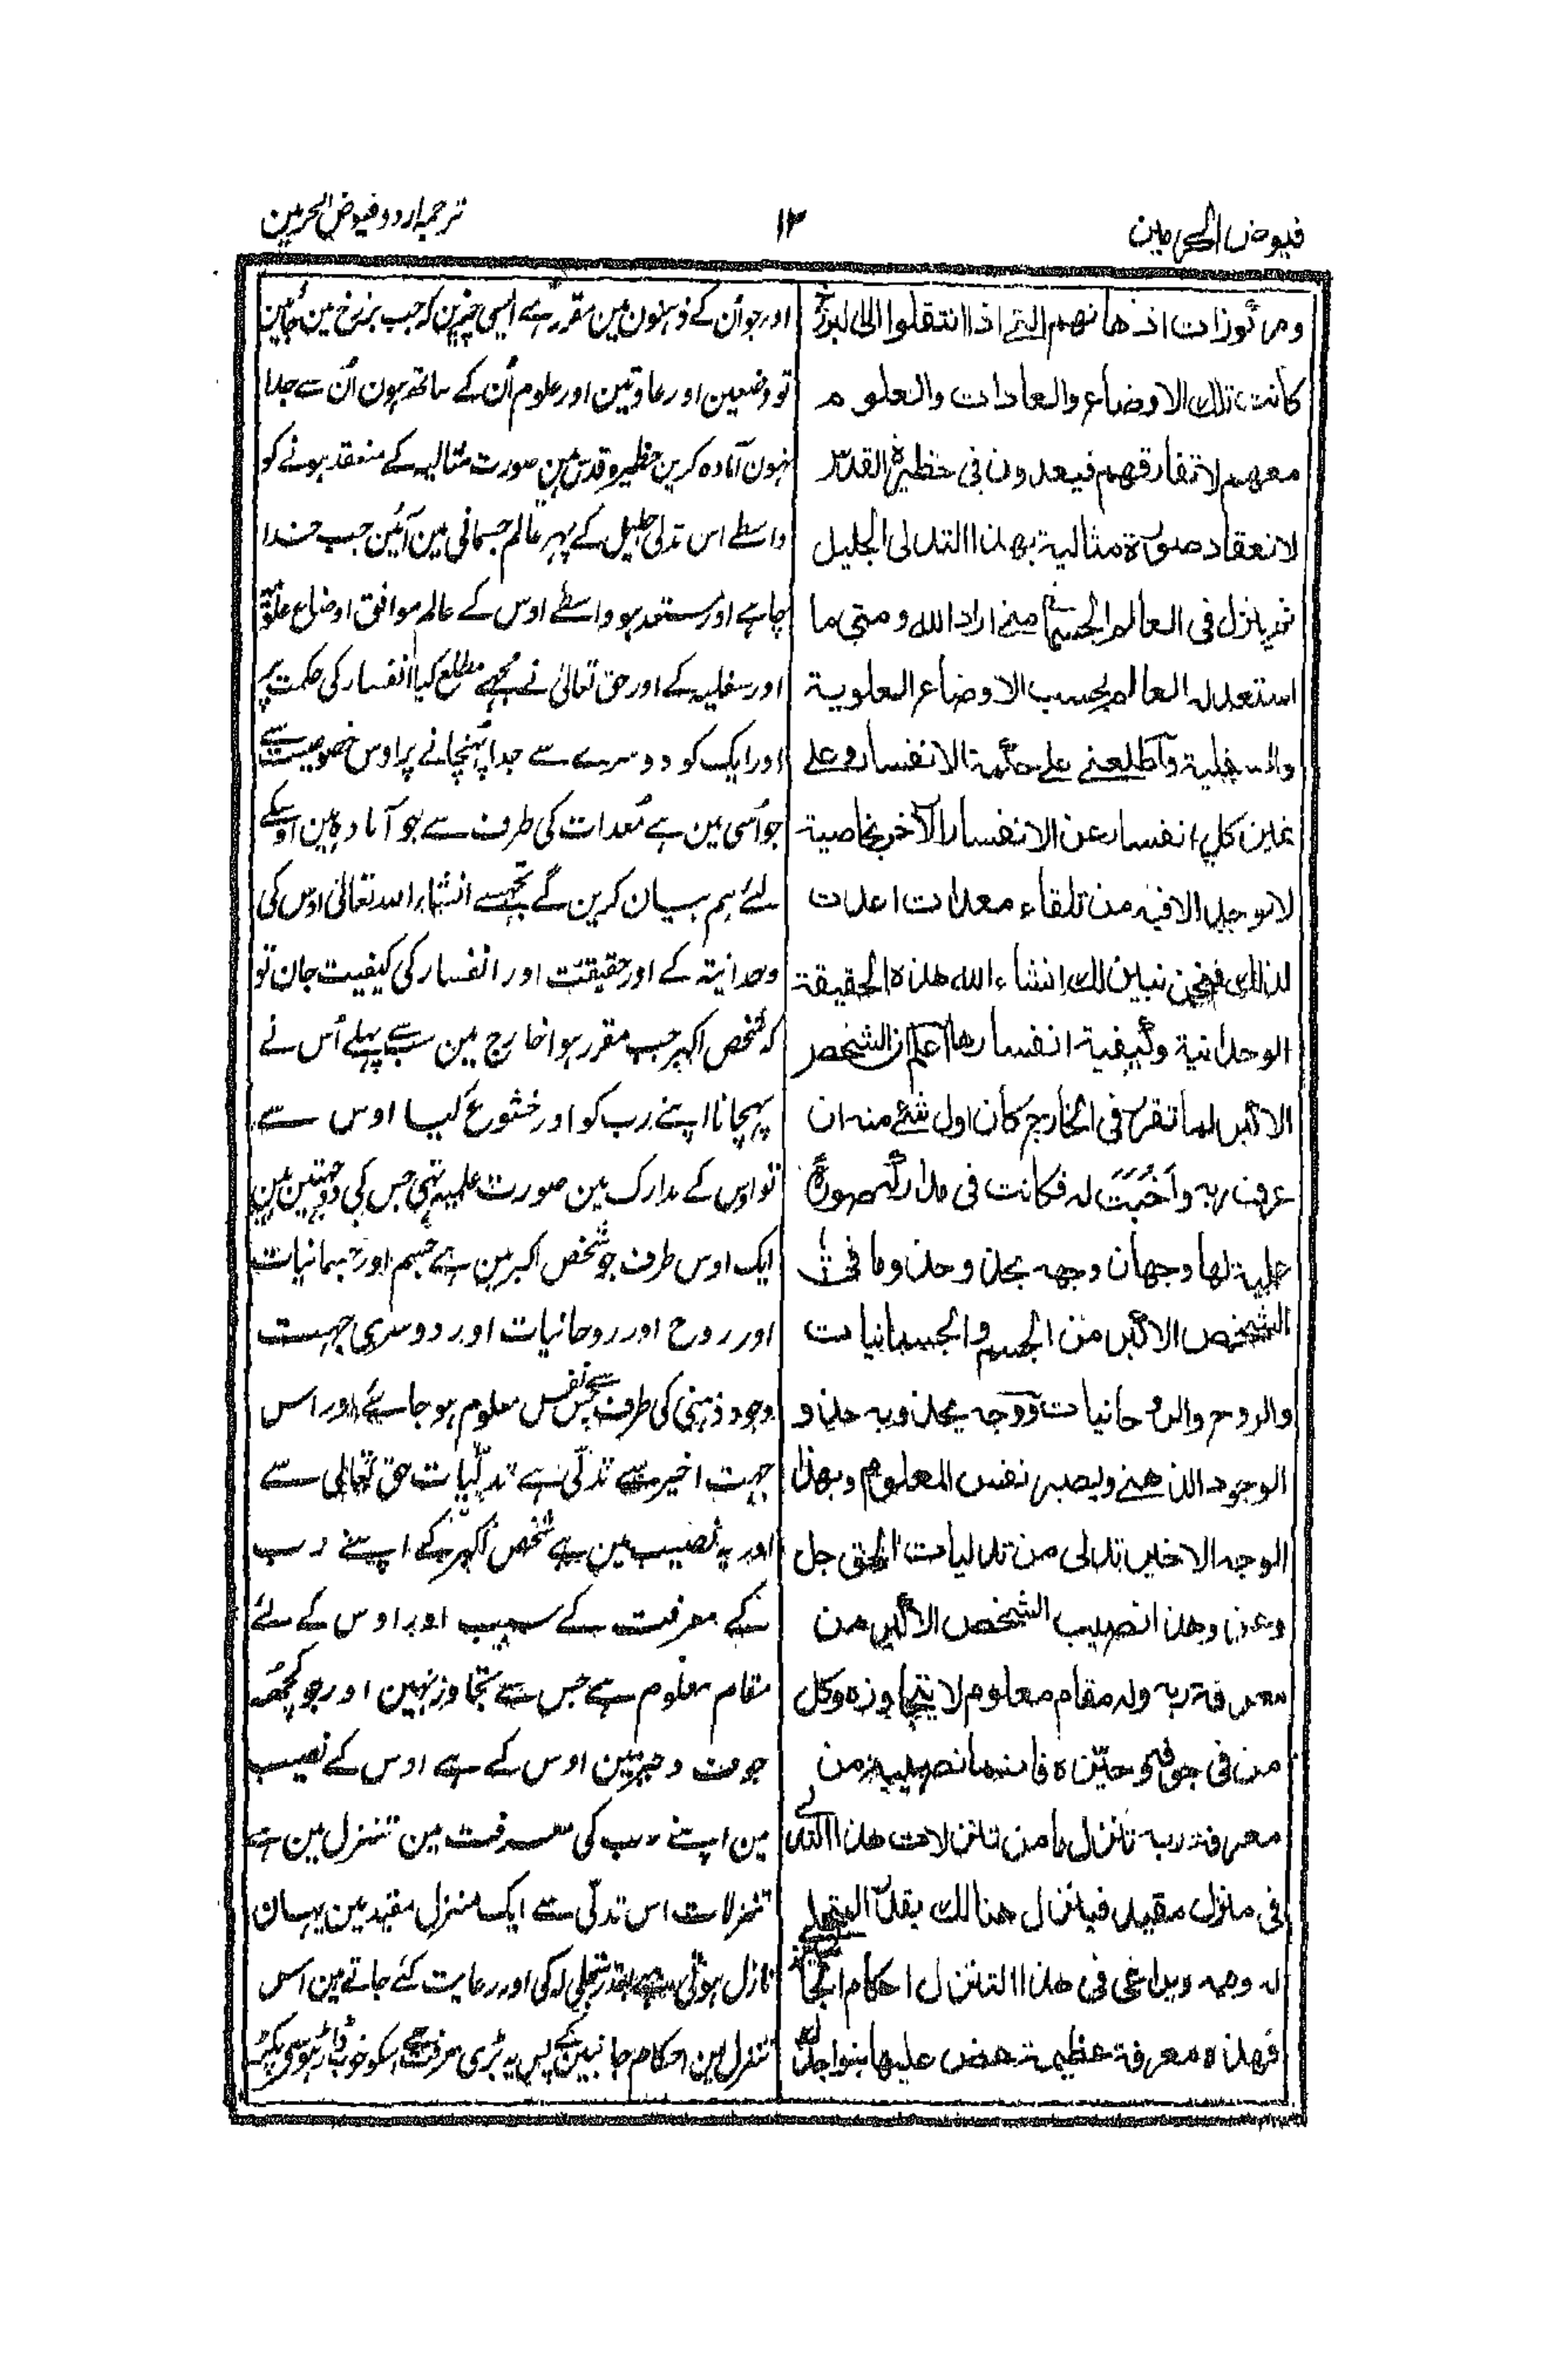 فيوض الحرمين
۱۲
ترجمہ اردو فیوض الحرمین
ومركوزات اذهانهم التي اذا انتقلوا الى البرزخ
كانت تلك الاوضاع والعادات والعلوم
معهم لا تفارقهم فيعدون في حظيرة القدس
لانعقاد صورة مثالية بهذا التدلى الجليل
ثم ينزل في العالم الجسماني متى اراد الله ومتى ما
استعد له العالم بحسب الاوضاع العلوية
والسفلية وأطلعني على حكمة الانفسار وعلى
تمييز كل انفسار عن الانفسار الآخر بخاصية
لا توجد الا فيه من تلقاء معدات اعدت
لذلك فنحن نبين لك انشاء الله هذه الحقيقة
الوحدانية وكيفية انفسارها اعلم ان الشخص
الاكبر لما تقرر في الخارج كان اول شئ منه ان
عرف ربه وأخبت له فكانت في مداركه صورة
علمية لها وجهان وجه بحذو وما في
الشخص الاكبر من الجسم والجسمانيات
والروح والروحانيات ووجه بحذو
الوجود الذهني ويصير نفس المعلوم وبهذا
الوجه الاخير تدلى من تدليات الحق جل
وعز وهذا نصيب الشخص الاكبر من
معرفة ربه وله مقام معلوم لا يتجاوزه وكل
من في جوفه وحيزه فانما نصيبه من
معرفة ربه تنزل ما من تنزلات هذا التدلي
في منزل مقيد فينزل هنالك بقدر المتجلي
له وجه ويراعى في هذا التنزل احكام
فهذه معرفة عظيمة عض عليها بنواجذك
اور جو اُن کے ذہنون مین مقرر ہے ایسی چیزین کہ جب برزخ مین جاین
تو وضعین اور عادتین اور علوم اُن کے ساتھ ہون اُن سے جدا
نہون آمادہ کرین حظیرہ قدس مین صورت مثالیہ کے منعقد ہونے کو
واسطے اس تدلی جلیل کے پہر عالم جسمانی مین آئین جب خدا
چاہے اور مستعد ہو واسطے اوس کے عالم موافق اوضاع علویہ
اور سفلیہ کے اور حق تعالیٰ نے مجہے مطلع کیا انفسار کی حکمت پر
اور ایک کو دوسرے سے جدا پہنچانے پر اوس خصوصیت سے
جو اُسی مین ہے مُعدات کی طرف سے جو آمادہ ہین اوسکے
لئے ہم بیان کرین گے تجہسے انشاء اللہ تعالیٰ اوس کی
وحدانیتہ کے اور حقیقت اور انفسار کی کیفیت جان تو
کہ شخص اکبر جب مقرر ہوا خارج مین سب سے پہلے اُس نے
پہچانا اپنے رب کو اور خشوع کیا اوس سے
تو اوس کے مدارک مین صورت علمیہ تہی جس کی دو جہتین ہین
ایک اوس طرف جو شخص اکبر مین ہے جسم اور جسمانیات
اور روح اور روحانیات اور دوسری جہت
وجود ذہنی کی طرف جس سے نفس معلوم ہو جائے اور اس
جہت اخیر سے تدلّی ہے تدلّیات حق تعالی سے
اور یہ نصیب مین ہے شخص اکبر کے اپنے رب
کے معرفت کے سبب اور اوس کے لئے
مقام معلوم ہے جس سے تجاوز نہین اور جو کچھ
جوف و حیز مین اوس کے ہے اوس کے نصیب
مین اپنے رب کی معرفت مین تنزل مین ہے
تنزلات اس تدلّی سے ایک منزل مقید مین یہان
نازل ہوئی بقدر متجلی لہ کی اور رعایت کئے جاتے ہین اس
تنزل مین احکام جانبین کے پس یہ بڑی معرفت ہے اسکو خوب پکڑ